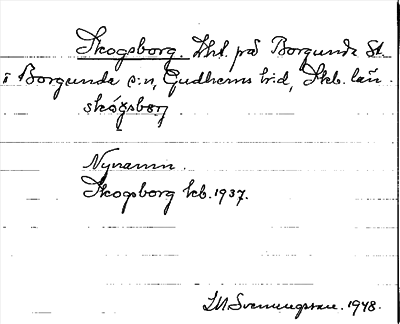 Skogsborg. Lht. på Borgunda St.
i Borgunda s:n, Gudhems hrd, Skb. län.
Nynamn.
Skogsborg kb. 1937.
IM Svenungsson. 1948.